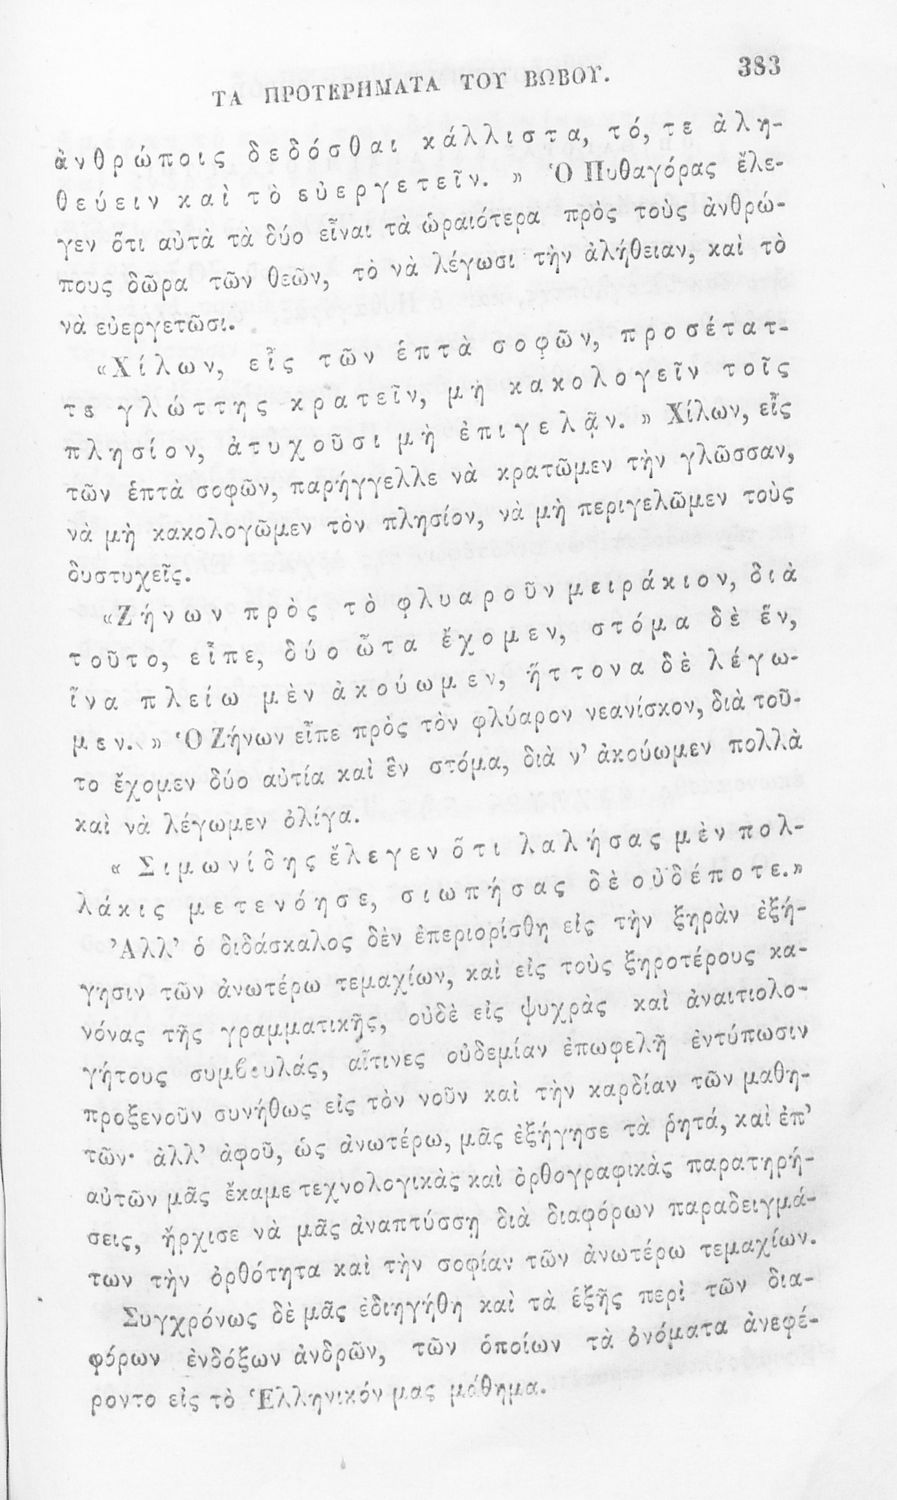 ΤΑ ΠΡΟΤΕΡΗΜΑΤΑ ΤΟΥ ΒΩΒΟΥ. 383
ἀνθρώποις δεδόσθαι κάλλιστα, τό, τε ἀλη-
θεύειν καὶ τὸ εὐεργετεῖν. » Ὁ Πυθαγόρας ἔλε-
γεν ὅτι αὐτὰ τὰ δύο εἶναι τὰ ὡραιότερα πρὸς τοὺς ἀνθρώ-
πους δῶρα τῶν θεῶν, τὸ νὰ λέγωσι τὴν ἀλήθειαν, καὶ τὸ
νὰ εὐεργετῶσι.
«Χίλων, εἷς τῶν ἑπτὰ σοφῶν, προσέτατ-
τε γλώττης κρατεῖν, μὴ κακολογεῖν τοῖς
πλησίον, ἀτυχοῦσι μὴ ἐπιγελᾷν. » Χίλων, εἷς
τῶν ἑπτὰ σοφῶν, παρήγγελλε νὰ κρατῶμεν τὴν γλῶσσαν,
νὰ μὴ κακολογῶμεν τὸν πλησίον, νὰ μὴ περιγελῶμεν τοὺς
δυστυχεῖς.
«Ζήνων πρὸς τὸ φλυαροῦν μειράκιον, διὰ
τοῦτο, εἶπε, δύο ὦτα ἔχομεν, στόμα δὲ ἕν,
ἵνα πλείω μὲν ἀκούωμεν, ἥττονα δὲ λέγω-
μεν. » Ὁ Ζήνων εἶπε πρὸς τὸν φλύαρον νεανίσκον, διὰ τοῦ-
το ἔχομεν δύο αὐτία καὶ ἓν στόμα, διὰ ν' ἀκούωμεν πολλὰ
καὶ νὰ λέγωμεν ὀλίγα.
« Σιμωνίδης ἔλεγεν ὅτι λαλήσας μὲν πολ-
λάκις μετενόησε, σιωπήσας δὲ οὐδέποτε.»
Ἀλλ' ὁ διδάσκαλος δὲν ἐπεριορίσθη εἰς τὴν ξηρὰν ἐξή-
γησιν τῶν ἀνωτέρω τεμαχίων, καὶ εἰς τοὺς ξηροτέρους κα-
νόνας τῆς γραμματικῆς, οὐδὲ εἰς ψυχρὰς καὶ ἀναιτιολο-
γήτους συμβουλάς, αἵτινες οὐδεμίαν ἐπωφελῆ ἐντύπωσιν
προξενοῦν συνήθως εἰς τὸν νοῦν καὶ τὴν καρδίαν τῶν μαθη-
τῶν· ἀλλ' ἀφοῦ, ὡς ἀνωτέρω, μᾶς ἐξήγησε τὰ ῥητά, καὶ ἐπ'
αὐτῶν μᾶς ἔκαμε τεχνολογικὰς καὶ ὀρθογραφικὰς παρατηρή-
σεις, ἤρχισε νὰ μᾶς ἀναπτύσσῃ διὰ διαφόρων παραδειγμά-
των τὴν ὀρθότητα καὶ τὴν σοφίαν τῶν ἀνωτέρω τεμαχίων.
Συγχρόνως δὲ μᾶς ἐδιηγήθη καὶ τὰ ἑξῆς περὶ τῶν δια-
φόρων ἐνδόξων ἀνδρῶν, τῶν ὁποίων τὰ ὀνόματα ἀνεφέ-
ροντο εἰς τὸ Ἑλληνικόν μας μάθημα.